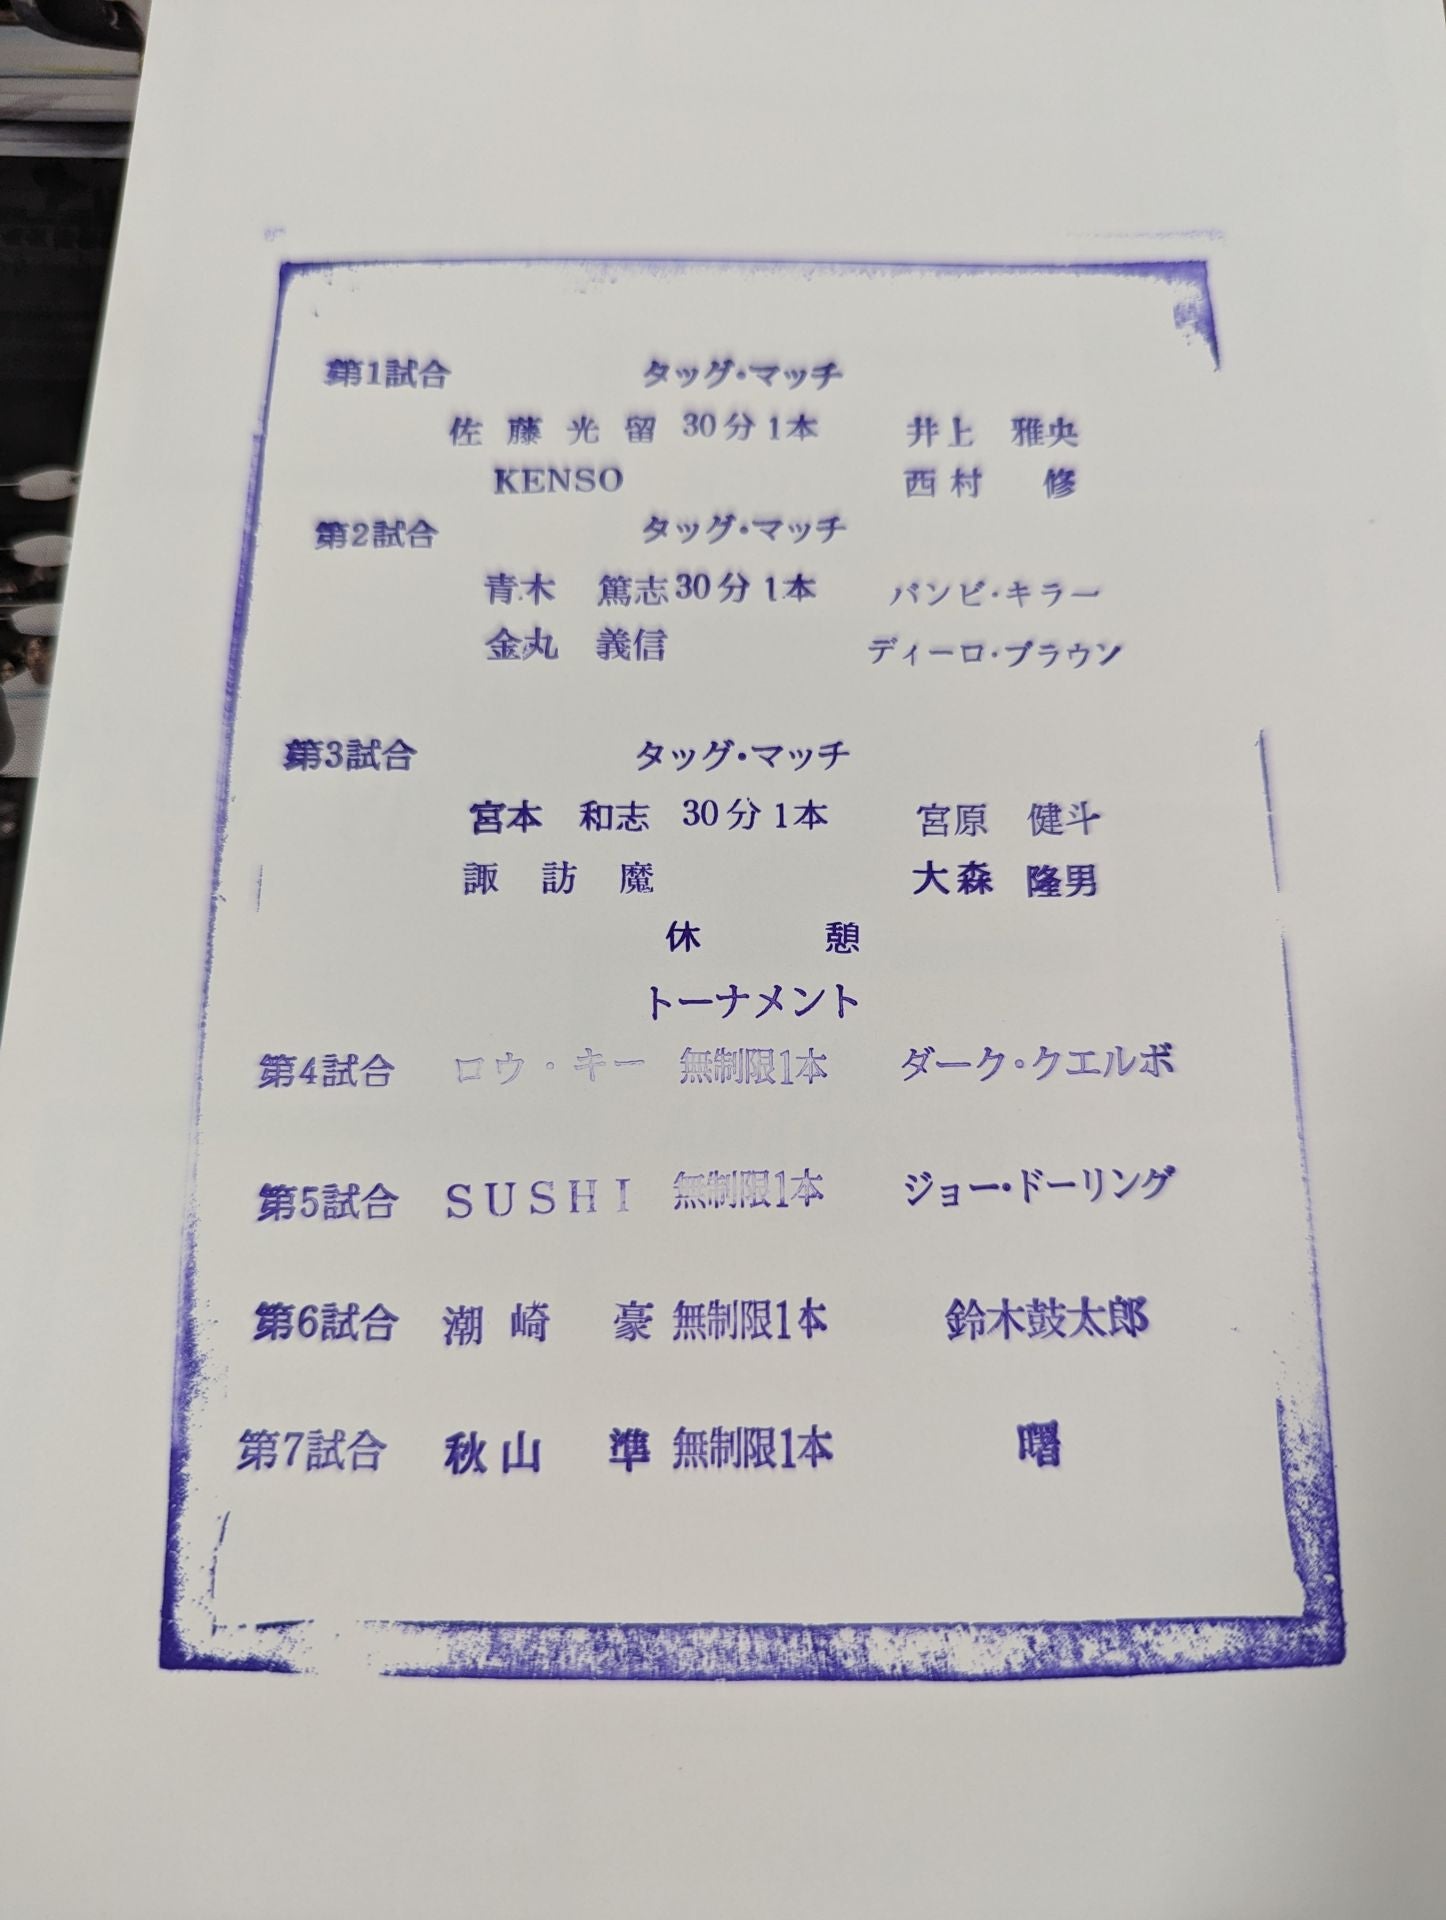 第1試合 タッグ・マッチ
佐藤光留 30分1本 井上 雅央
KENSO 西村 修
第2試合 タッグ・マッチ
青木 篤志 30分1本 バンビ・キラー
金丸 義信 ディーロ・ブラウン
第3試合 タッグ・マッチ
宮本 和志 30分1本 宮原 健斗
諏訪魔 大森 隆男
休憩
トーナメント
第4試合 ロウ・キー 無制限1本 ダーク・クエルボ
第5試合 SUSHI 無制限1本 ジョー・ドーリング
第6試合 潮崎 豪 無制限1本 鈴木鼓太郎
第7試合 秋山 準 無制限1本 曙